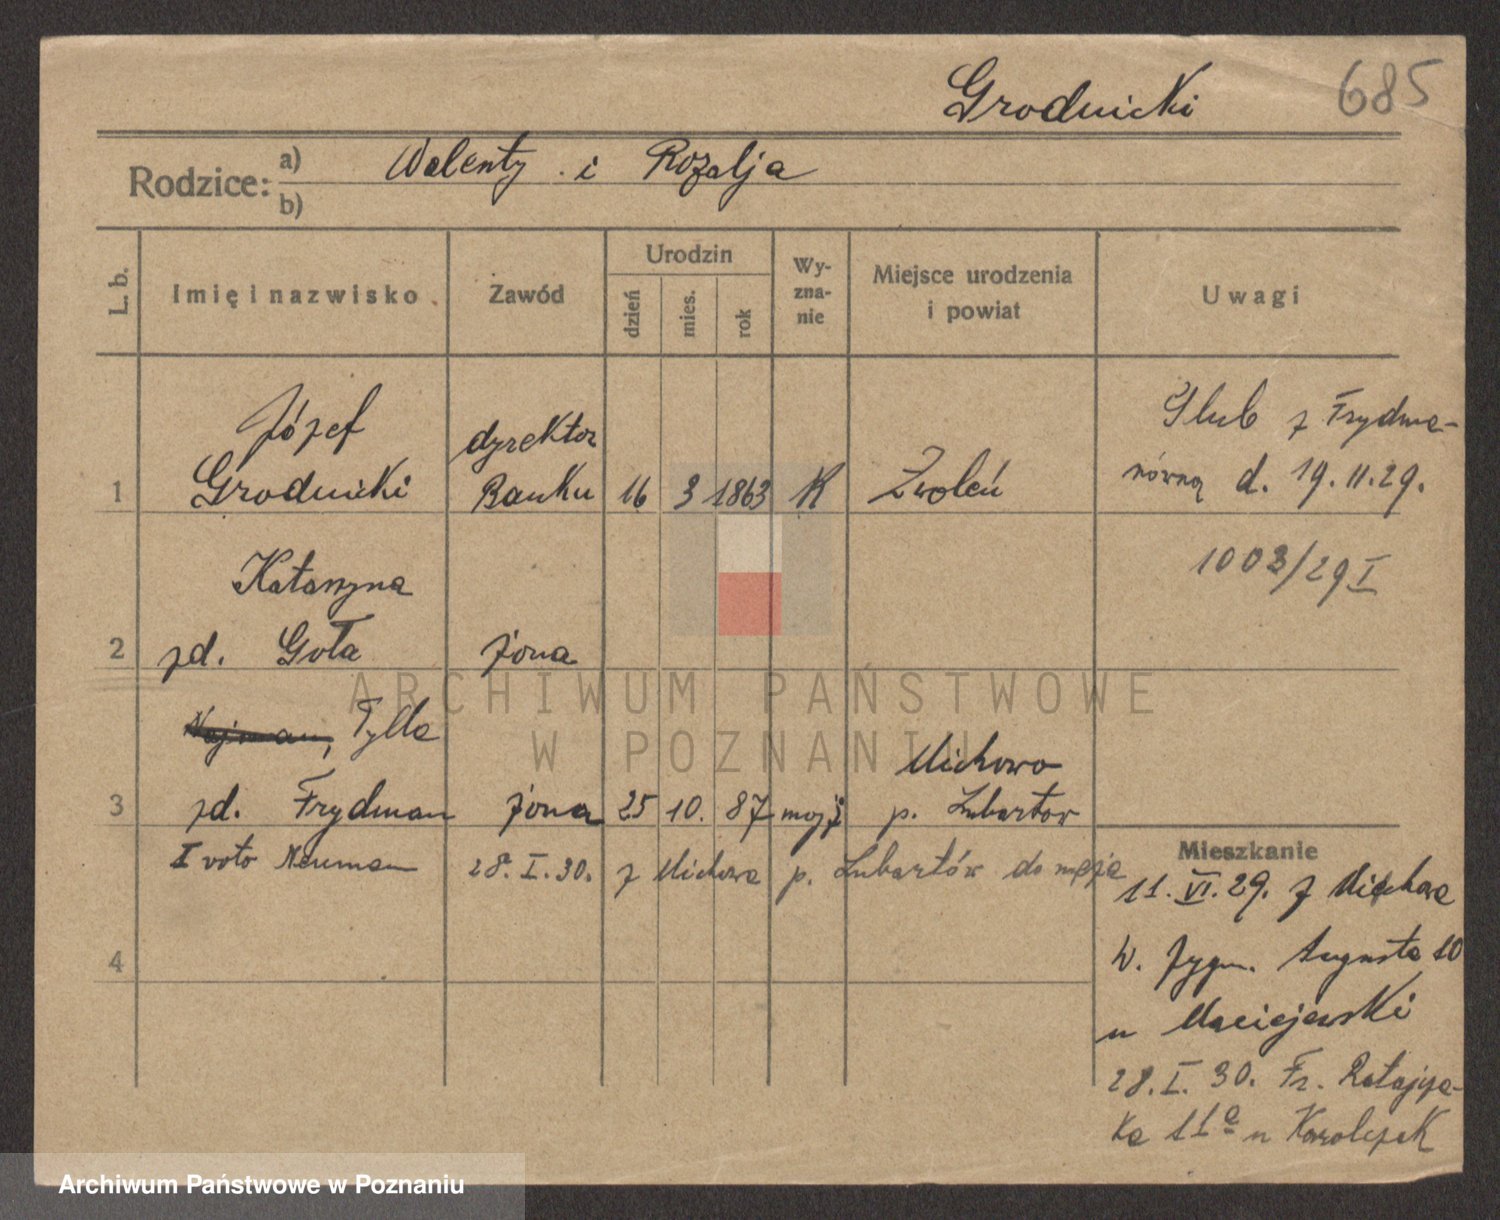 Grodnicki 685
Rodzice: a) Walenty i Rozalja
b)
L. b. Imię i nazwisko Zawód Urodzin dzień mies. rok Wy-zna-nie Miejsce urodzenia i powiat Uwagi
Józef dyrektor Slub z Frydma-
1 Grodnicki Banku 16 3 1863 K Zwoleń nówną d. 19.11.29.
Katarzyna 1003/29 I
2 zd. Gola żona
Najman, Tylla Michowo
3 zd. Frydman żona 25 10. 87 mojż p. Lubartow
I voto Neuman 28. I. 30. z Michowa p. Lubartów do męża
Mieszkanie
11. VI. 29. z Michowa
4 W. Zygm. Augusta 10
u Maciejewski
28. I. 30. Fr. Ratajcza-
ka 11a u Karolczak
ARCHIWUM PAŃSTWOWE
W POZNANIU
Archiwum Państwowe w Poznaniu